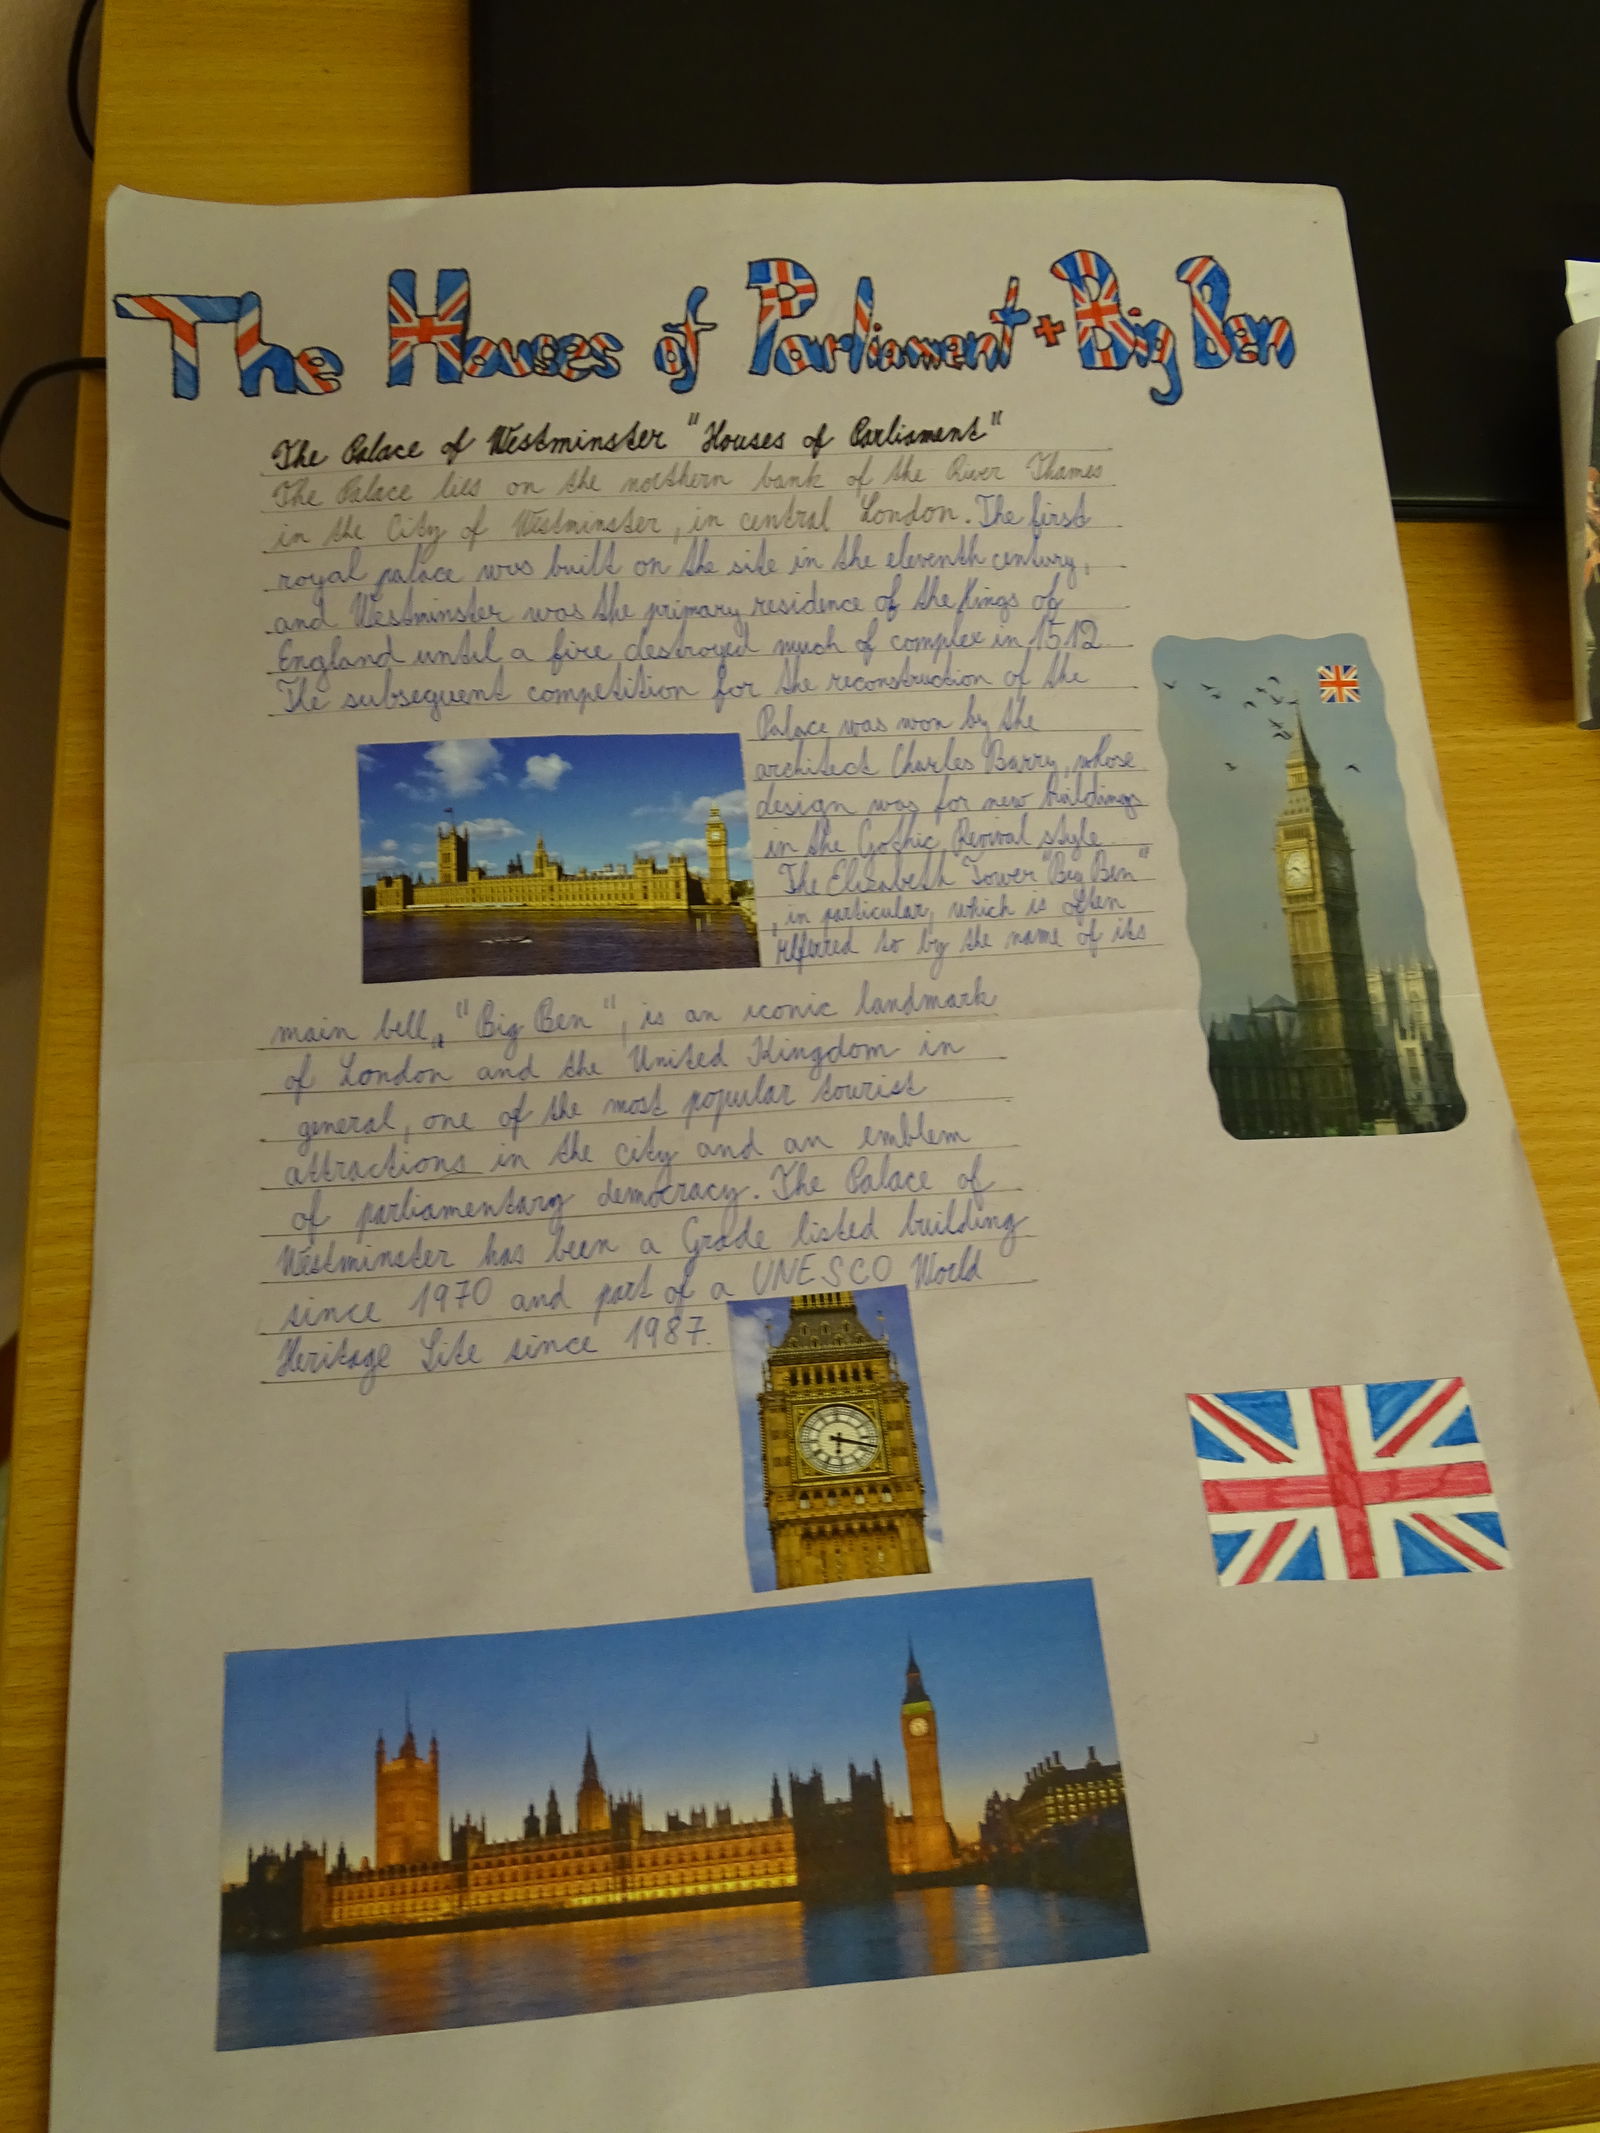 The Houses of Parliament + Big Ben
The Palace of Westminster "Houses of Parliament"
The Palace lies on the northern bank of the River Thames
in the City of Westminster, in central London. The first
royal palace was built on the site in the eleventh century,
and Westminster was the primary residence of the Kings of
England until a fire destroyed much of complex in 1512.
The subsequent competition for the reconstruction of the
Palace was won by the
architect Charles Barry, whose
design was for new buildings
in the Gothic Revival style.
The Elizabeth Tower "Big Ben"
, in particular, which is often
referred to by the name of its
main bell, "Big Ben", is an iconic landmark
of London and the United Kingdom in
general, one of the most popular tourist
attractions in the city and an emblem
of parliamentary democracy. The Palace of
Westminster has been a Grade listed building
since 1970 and part of a UNESCO World
Heritage Site since 1987.